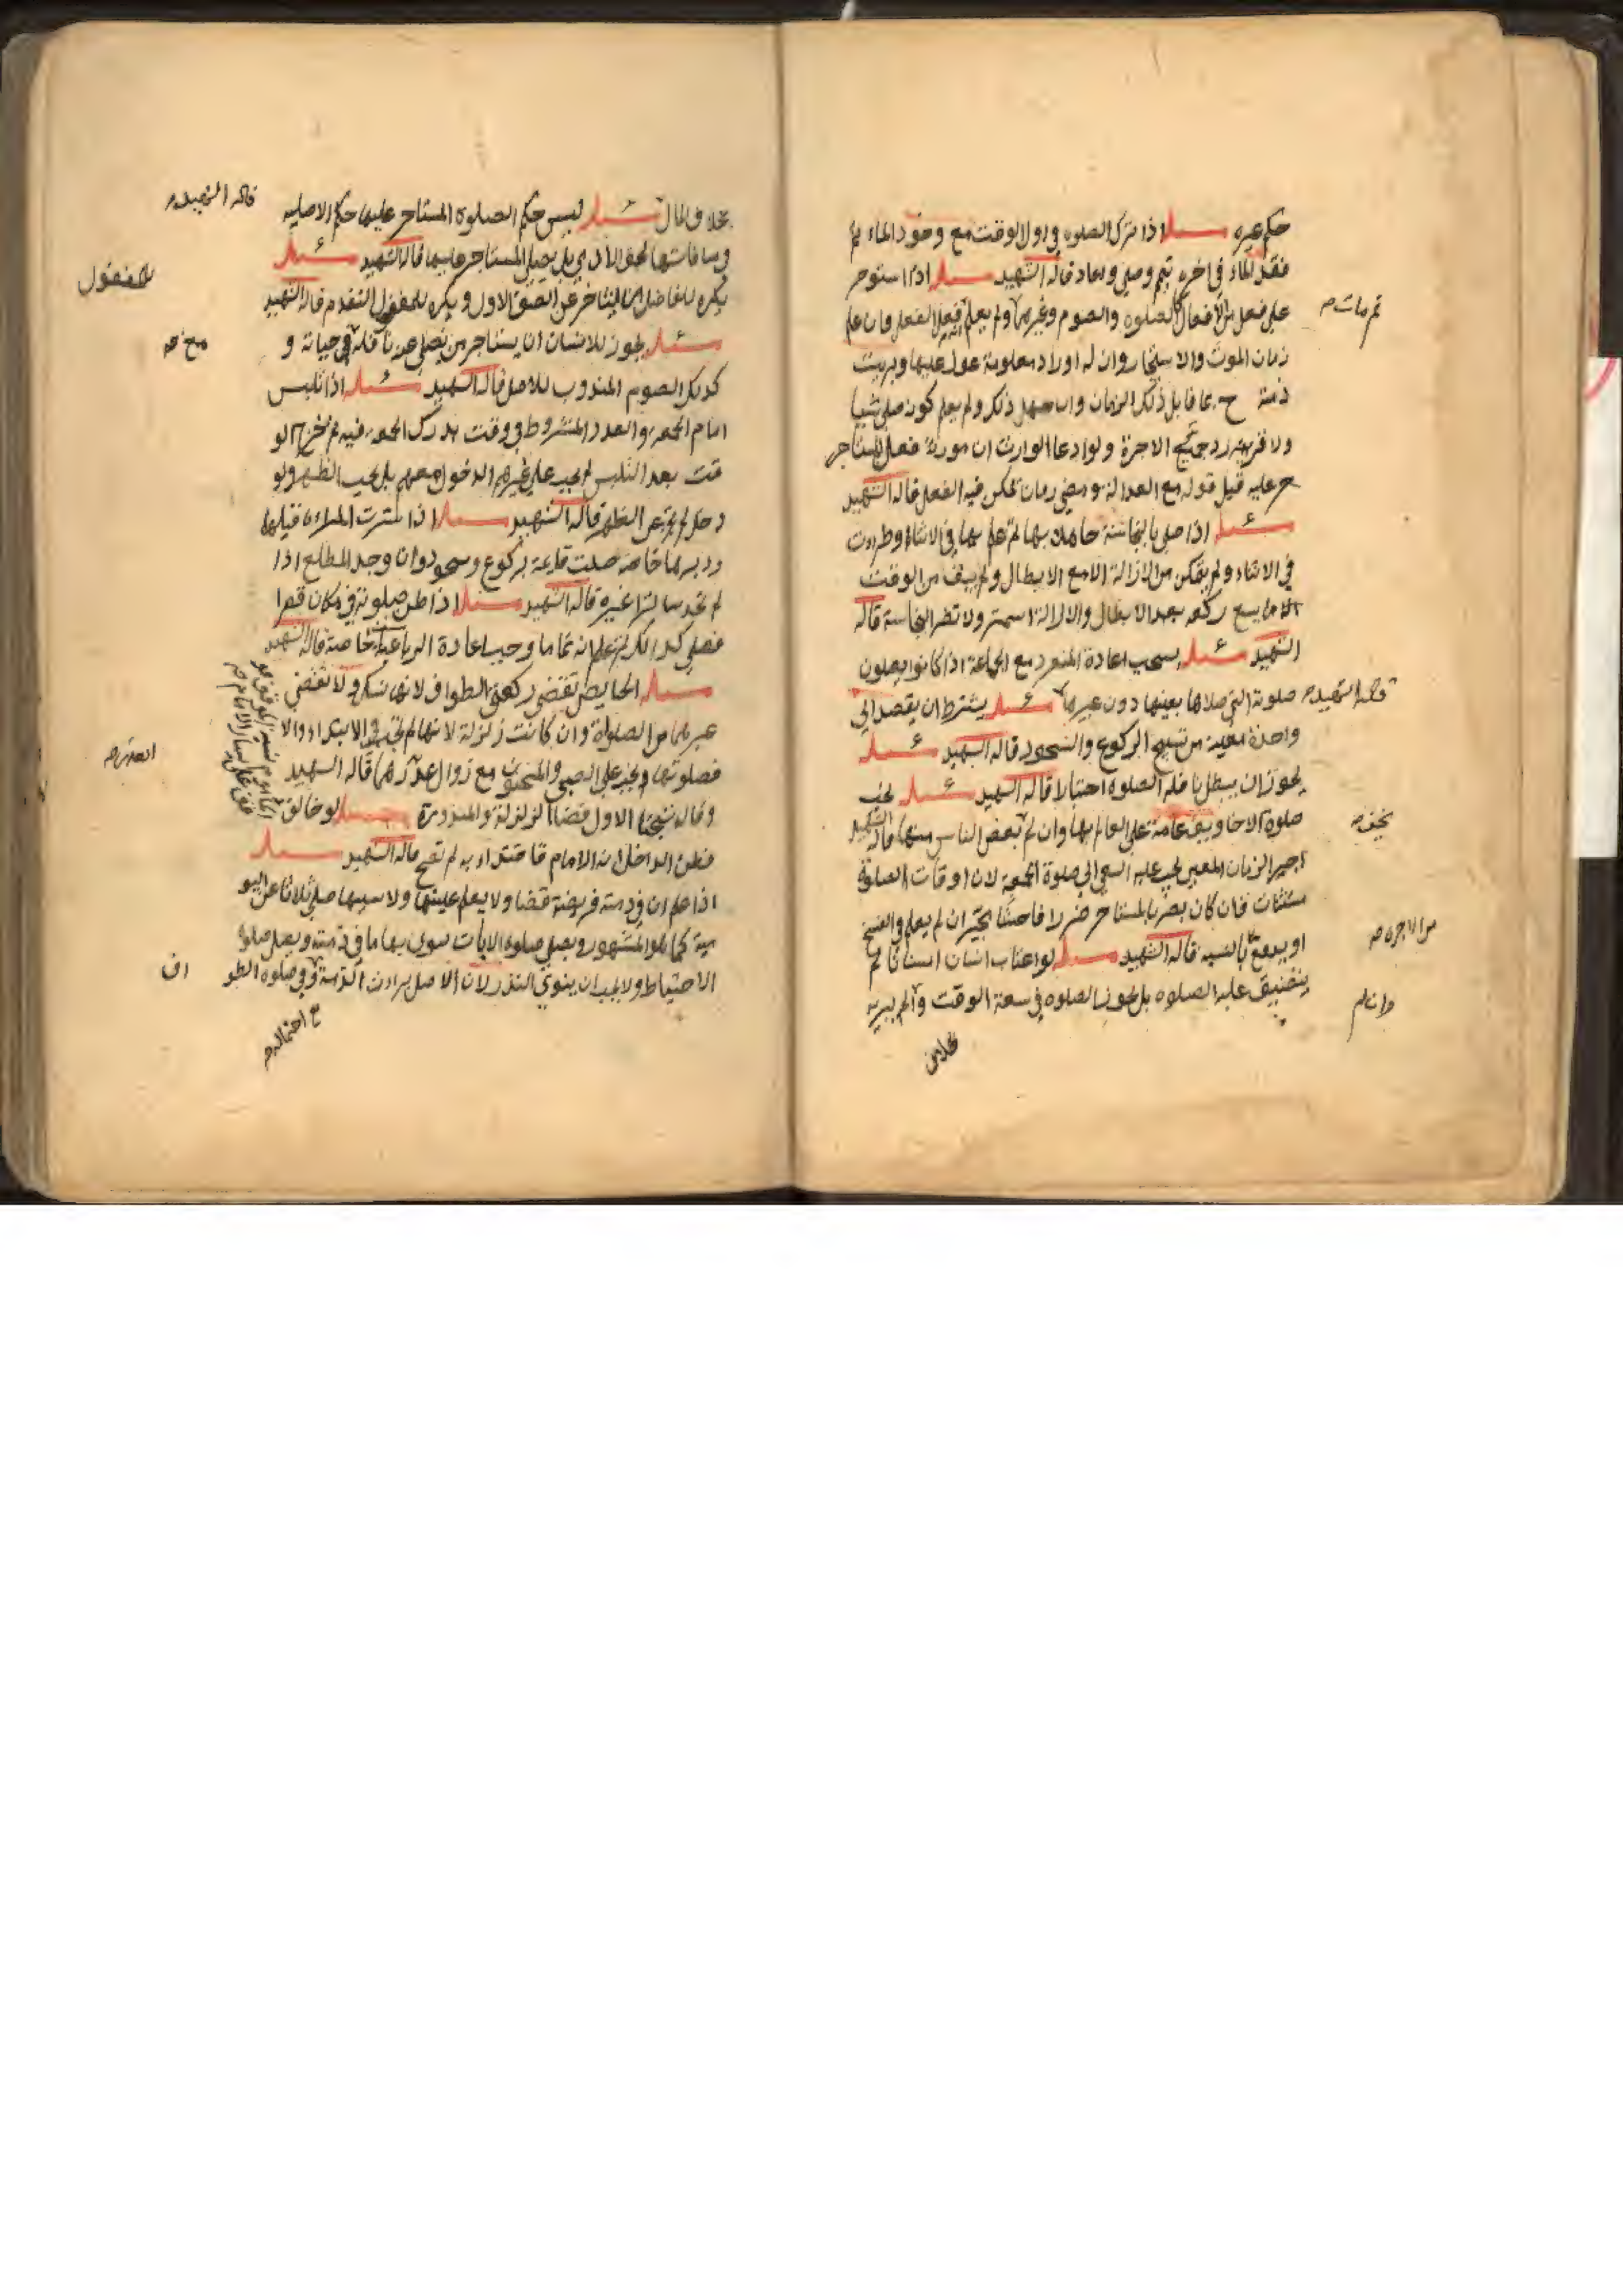 حكم غيره مسئلة اذا ترك الصلوة في اول الوقت مع وجود الماء ثم
فقد الماء في اخره تيمم وصلى واعاد قاله الشهيد مسئلة اذا استوجر
على فعل من الافعال كالصلوة والصوم وغيرهما ولم يعلم فعل الفعل فان علم
ثم مات صح
زمان الموت والاستيجار وان له اوراد معلومة عول عليها وبريت
ذمته ح بما قابل ذلك الزمان وان جهل ذلك ولم يعلم كونه صلى شيا
ولا قرينة رد جميع الاجرة ولو ادعا الوارث ان مورثه فعل المستاجر
ح عليه قبل قوله مع العدالة ومضي زمان يمكن فيه الفعل قاله الشهيد
مسئلة اذا صلى بالنجاسة جاهلا بها ثم علم بها في الاثناء وطرءت
في الاثناء ولم يتمكن من الازالة الا مع الابطال ولم يبق من الوقت
الا ما يسع ركعة بعد الابطال والازالة استمر ولا تضر النجاسة قاله
الشهيد مسئلة يستحب اعادة المنفرد مع الجماعة اذا كانوا يصلون
صلوته التي صلاها بعينها دون غيرها مسئلة يشترط ان يقصد الى
قاله الشهيد صح
واحدة معينة من تسبيح الركوع والسجود قاله الشهيد مسئلة
يجوز ان يبطل نافلة الصلوة اختيارا قاله الشهيد مسئلة يجب
صلوة الاخاويف عامة على العالم بها وان لم بعض الناس منها قاله الشهيد
يخف صح
اجير الزمان المعين يجب عليه السعي الى صلوة الجمعة لان اوقات الصلوة
مستثنات فان كان يضر بالمستاجر ضررا فاحشا تخير ان لم يعلم والفسخ
او يدفع بالنسبة قاله الشهيد مسئلة لو اغتاب انسان انسانا لم
من الاجرة صح
يتضيق عليه الصلوة بل يجوز الصلوة في سعة الوقت وان لم يبريه
وان لم
بخلاف
بخلاف المال مسئلة ليس حكم الصلوة المستاجر عليها حكم الاصلية
قاله الشهيد صح
ومنافاتها لحق الادمي بل يصلي المستاجر عليها قاله الشهيد مسئلة
يكره للفاضل ان يتاخر عن الصف الاول ويكره للمفضول التقدم قاله الشهيد
للمفضول
مسئلة يجوز للانسان ان يستاجر من يصلي عنه نافلة في حياته و
كذلك الصوم المندوب للاصل قاله الشهيد مسئلة اذا تلبس
امام الجمعة والعدد المشروط ووقت يدرك الجمعة فيه ثم خرج الو
قت بعد التلبس لم يجب على غيرهم الدخول معهم بل يجب الظهر ولو
دخل لم يجز عن الظهر قاله الشهيد مسئلة اذا سترت المراة قبلها
ودبرها خاصة صلت قايمة بركوع وسجود وان وجد المطلع اذا
لم تجد ساترا غيره قاله الشهيد مسئلة اذا ظن صلوته في مكان قصرا
فصلى كذلك ثم علم انه تماما وجب اعادة الرباعيات خاصة قاله الشهيد
مسئلة الحايض تقضي ركعتي الطواف لانها تتكرر ولا تقضي
غيرهما من الصلوة وان كانت زلزلة لانها لم تجب في الابتداء والا
فصلوتها لم تجب على الصبي والمجنون مع زوال عذرهما قاله الشهيد
وقال شيخنا الاول قضاء الزلزلة والمنذورة مسئلة لو خالف
فظن الداخل انه الامام فاقتداء به لم تصح قاله الشهيد مسئلة
اذا علم ان في ذمته فريضة قضا ولا يعلم عينها ولا سببها صلى ثلاثا عن اليو
مية كما هو المشهور ويصلي صلوة الايات ينوي بها ما في ذمته ويصلي صلوة
الاحتياط ولا يجب ان ينوي النذر لان الاصل براءت الذمة وفي صلوة الطو
اف
مع احتماله صح